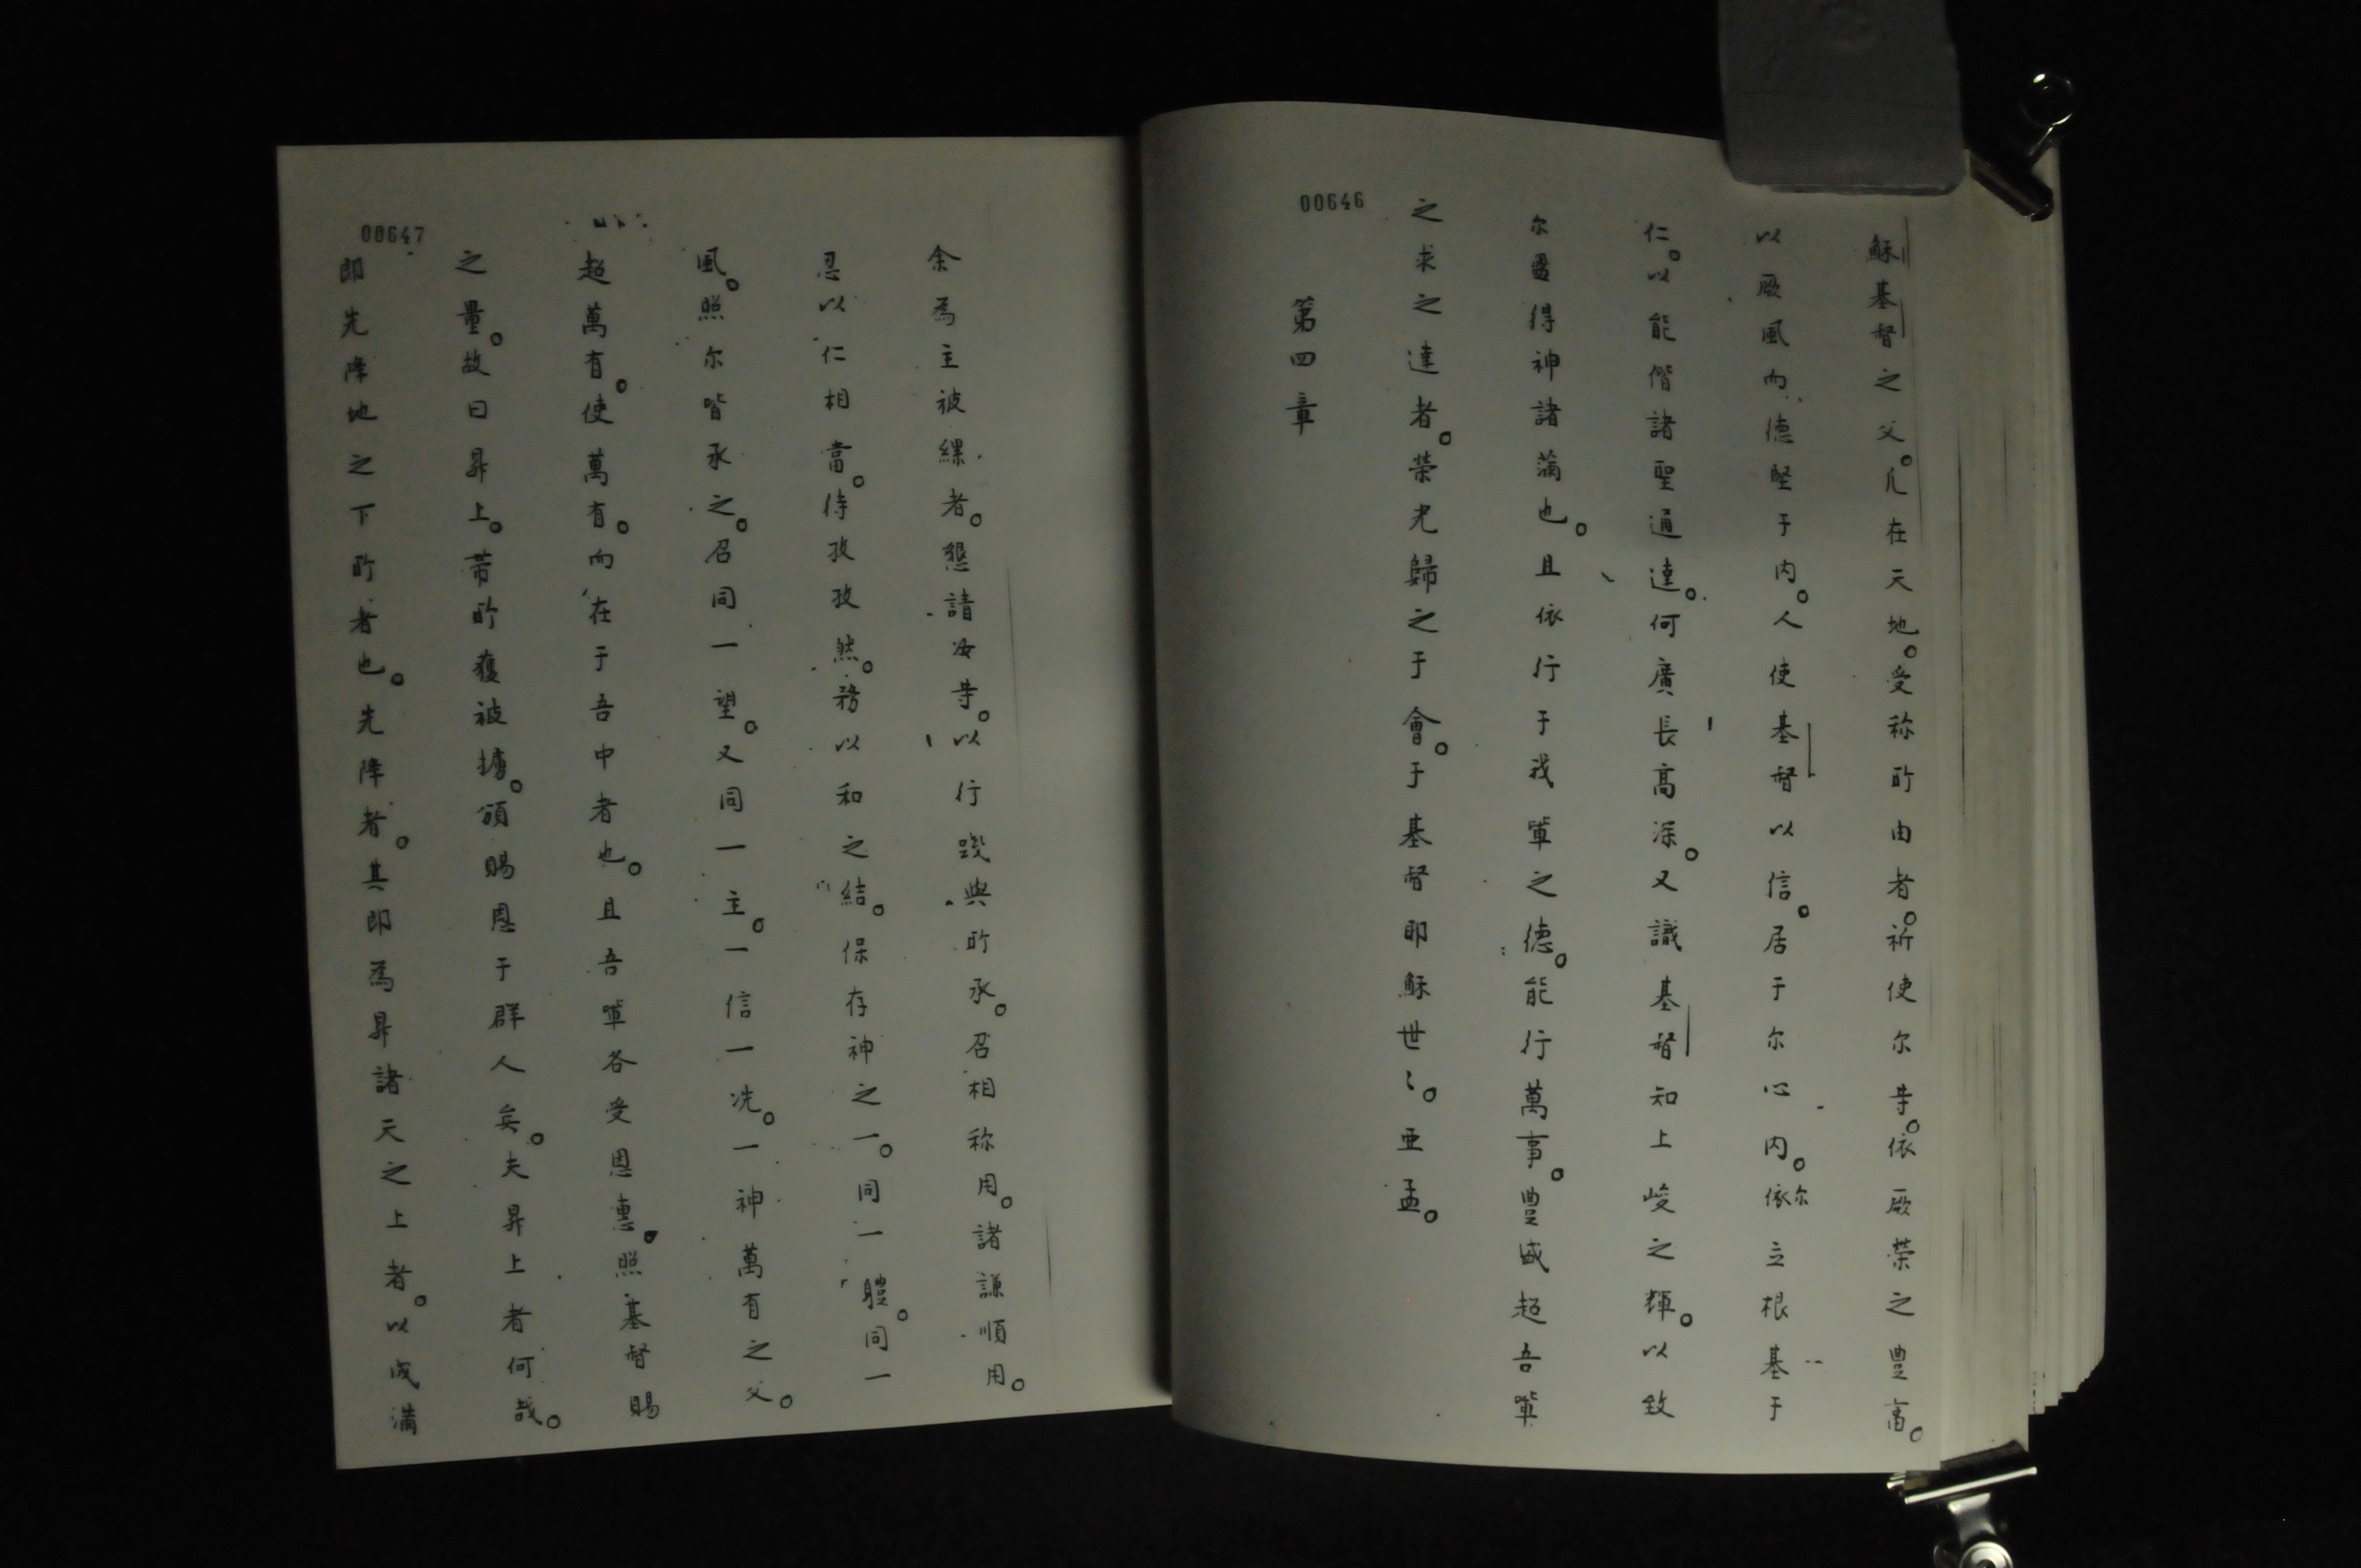 穌基督之父。凢在天地。受称所由者。祈使尔等。依厥荣之豊高。
以厥風而德堅于内。人使基督以信。居于尔心内。依尔立根基于
仁。以能偕諸聖通達。何廣長高深。又識基督知上峻之輝。以致
尔盈得神諸滿也。且依行于我軰之德。能行萬事。豊盛超吾軰
之求之達者。荣光歸之于會。于基督即穌世〻。亚孟。
第四章
00646
余為主被縲者。懇請汝等。以行踪與所承。召相称用。諸謙順用。
忍以仁相當。侍孜孜然。務以和之結。保存神之一。同一體。同一
風。照尔皆承之。召同一望。又同一主。一信一洗。一神萬有之父。
超萬有。使萬有。而在于吾中者也。且吾軰各受恩惠。照基督賜
之量。故曰昇上。带所獲被擄。頒賜恩于群人矣。夫昇上者何哉。
即先降地之下所者也。先降者。其即為昇諸天之上者。以成滿
00647